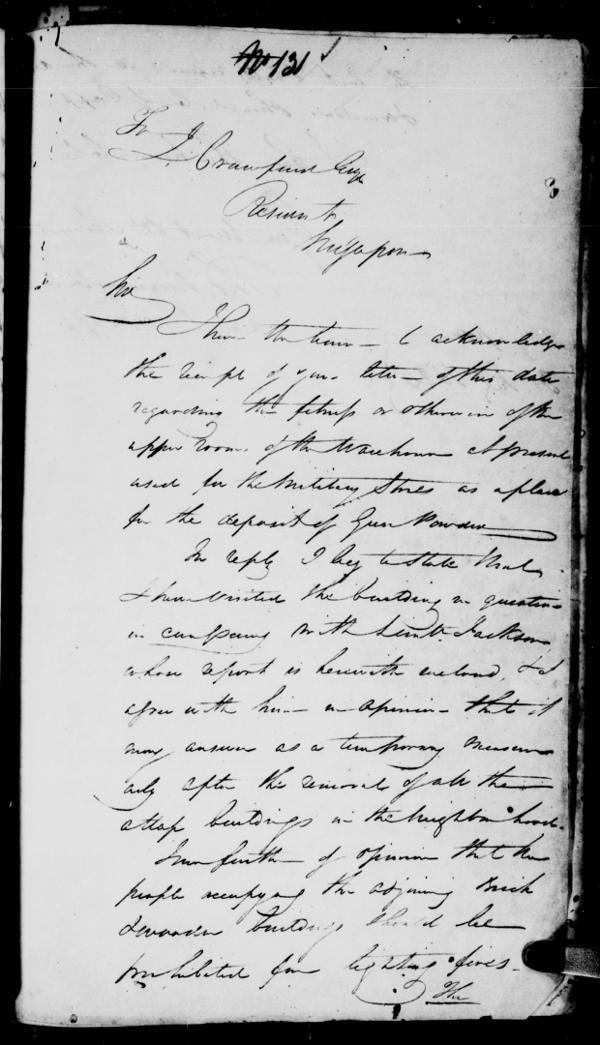 No 131
To
J. Crawfurd Esqr
Resident
Singapore
Sir
I have the honor to acknowledge
the receipt of your letter of this date
regarding the fitness or otherwise of the
upper rooms of the Warehouse at present
used for the Military Stores as a place
for the deposit of Gun Powder
In reply I beg to state that
I have visited the building in question
in company with Lieut. Jackson
whose report is herewith enclosed, & I
agree with him in opinion that it
may answer as a temporary measure
only after the removal of all the
attap buildings in the neighbourhood.
I am further of opinion that the
people occupying the adjoining Brick
& wooden buildings should be
prohibited from lighting fires.
The